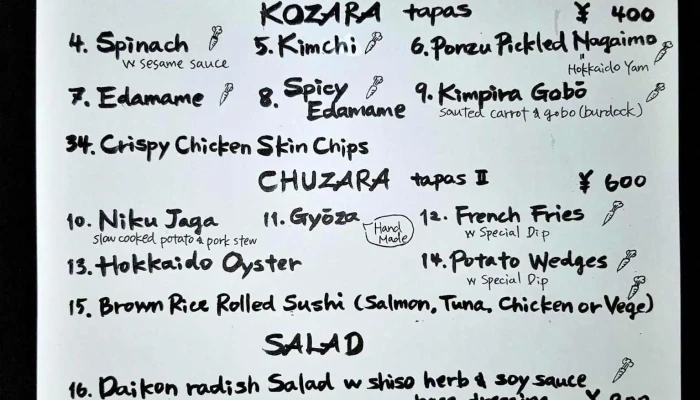 KOZARA tapas ¥ 400
4. Spinach 5. Kimchi 6. Ponzu Pickled Nagaimo
w sesame sauce Hokkaido Yam
7. Edamame 8. Spicy Edamame 9. Kimpira Gobō
sauted carrot & gobo (burdock)
34. Crispy Chicken Skin Chips
CHUZARA tapas II ¥ 600
10. Niku Jaga 11. Gyōza Hand Made 12. French Fries
slow cooked potato & pork stew w Special Dip
13. Hokkaido Oyster 14. Potato Wedges
w Special Dip
15. Brown Rice Rolled Sushi (Salmon, Tuna, Chicken or Vege)
SALAD
16. Daikon radish Salad w shiso herb & soy sauce